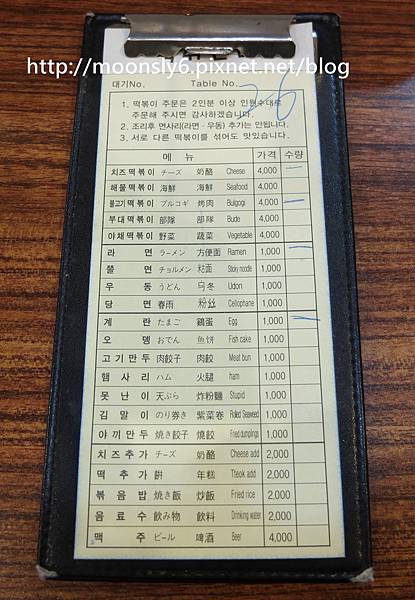 http://moonsly6.pixnet.net/blog
대기No. Table No. 26
1. 떡볶이 주문은 2인분 이상 인원수대로
주문해 주시면 감사하겠습니다.
2. 조리후 면사리(라면·우동) 추가는 안됩니다.
3. 서로 다른 떡볶이를 섞어도 맛있습니다.
메 뉴 가격 수량
치즈떡볶이 チーズ 奶酪 Cheese 4,000
해물떡볶이 海鮮 海鮮 Seafood 4,000
불고기떡볶이 プルコギ 烤肉 Bulgogi 4,000
부대떡볶이 部隊 部隊 Bude 4,000
야채떡볶이 野菜 蔬菜 Vegetable 4,000
라 면 ラーメン 方便面 Ramen 1,000
쫄 면 チョルメン 粘面 Sticky noodle 1,000
우 동 うどん 乌冬 Udon 1,000
당 면 春雨 粉丝 Cellophane 1,000
계 란 たまご 鷄蛋 Egg 1,000
오 뎅 おでん 鱼饼 Fish cake 1,000
고기만두 肉餃子 肉餃 Meat bun 1,000
햄 사 리 ハム 火腿 ham 1,000
못 난 이 天ぷら 炸粉麵 Stupid 1,000
김 말 이 のり巻き 紫菜卷 Rolled Seaweed 1,000
야끼만두 焼き餃子 燒餃 Fried dumplings 1,000
치즈추가 チーズ 奶酪 Cheese add 2,000
떡 추 가 餅 年糕 Tteok add 2,000
볶 음 밥 焼き飯 炒飯 Fried rice 2,000
음 료 수 飲み物 飲料 Drinking water 2,000
맥 주 ビール 啤酒 Beer 4,000